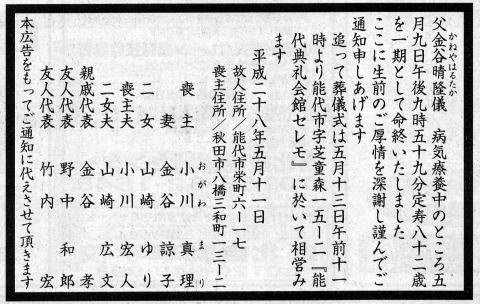 父金谷晴隆儀　病気療養中のところ五
かねやはるたか
月九日午後九時五十九分定寿八十二歳
を一期として命終いたしました
ここに生前のご厚情を深謝し謹んでご
通知申しあげます
追って葬儀式は五月十三日午前十一
時より能代市字芝童森一五ー二『能
代典礼会館セレモ』に於いて相営み
ます
平成二十八年五月十一日
故人住所／能代市栄町六ー一七
喪主住所／秋田市八橋三和町一三ー二
喪主　小川真理
おがわまり
妻　金谷諒子
二女　山崎ゆり
喪主夫　小川宏人
二女夫　山崎広文
親戚代表　金谷孝
友人代表　野中和郎
友人代表　竹内宏
本広告をもってご通知に代えさせて頂きます